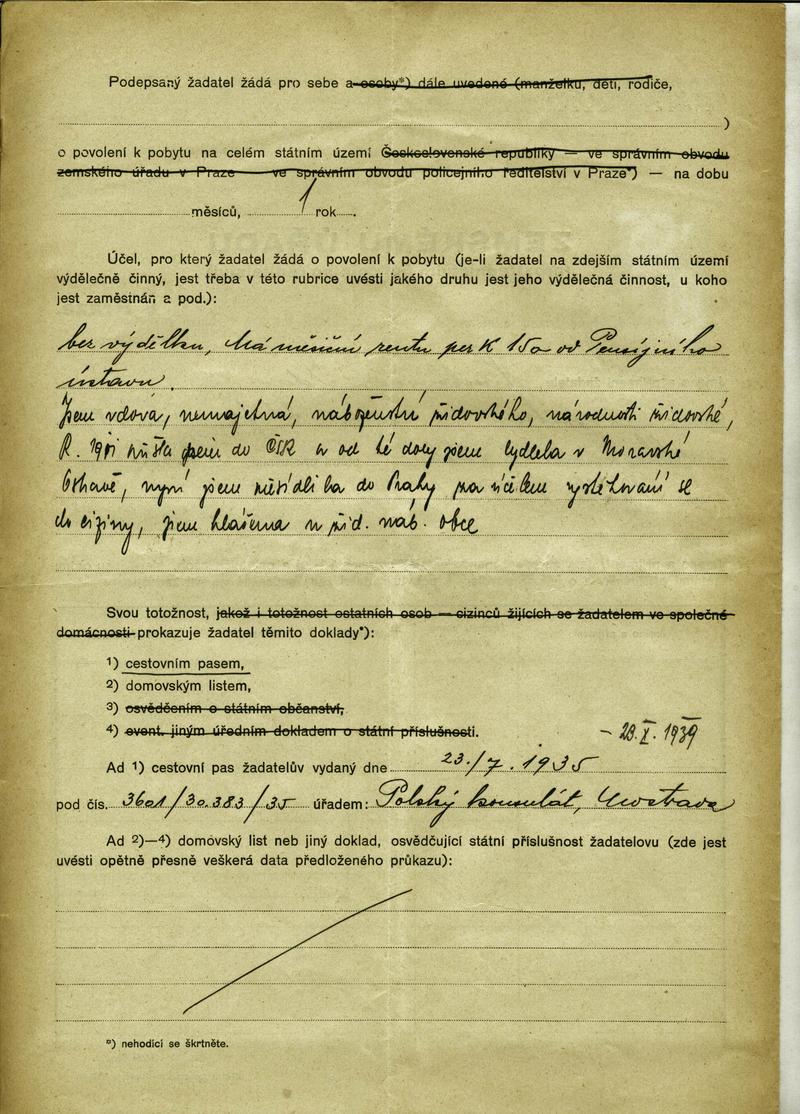 Podepsaný žadatel žádá pro sebe a osoby*) dále uvedené (manželku, děti, rodiče,
)
o povolení k pobytu na celém státním území Československé republiky — ve správním obvodu
zemského úřadu v Praze — ve správním obvodu policejního ředitelství v Praze*) — na dobu
měsíců, 1 rok
Účel, pro který žadatel žádá o povolení k pobytu (je-li žadatel na zdejším státním území
výdělečně činný, jest třeba v této rubrice uvésti jakého druhu jest jeho výdělečná činnost, u koho
jest zaměstnán a pod.):
bez výdělku, má měsíční rentu per K 150 od Pensijního
ústavu.
Jsem vdova, nemajetná, náboženství židovského, národnosti židovské,
R. 1911 přišla jsem do ČSR a od té doby jsem bydlela v Moravské
Ostravě, nyní jsem přesídlila do Prahy za účelem vystěhování se
do ciziny, jsem hlášena u žid. náb. obce
Svou totožnost, jakož i totožnost ostatních osob — cizinců žijících se žadatelem ve společné
domácnosti prokazuje žadatel těmito doklady*):
1) cestovním pasem,
2) domovským listem,
3) osvědčením o státním občanství,
4) event. jiným úředním dokladem o státní příslušnosti.
– 28.I.1939
Ad 1) cestovní pas žadatelův vydaný dne 23./7. 1935
pod čís. 3601/30.383/35 úřadem: Polský konsulát,
Ad 2)—4) domovský list neb jiný doklad, osvědčující státní příslušnost žadatelovu (zde jest
uvésti opětně přesně veškerá data předloženého průkazu):
*) nehodící se škrtněte.